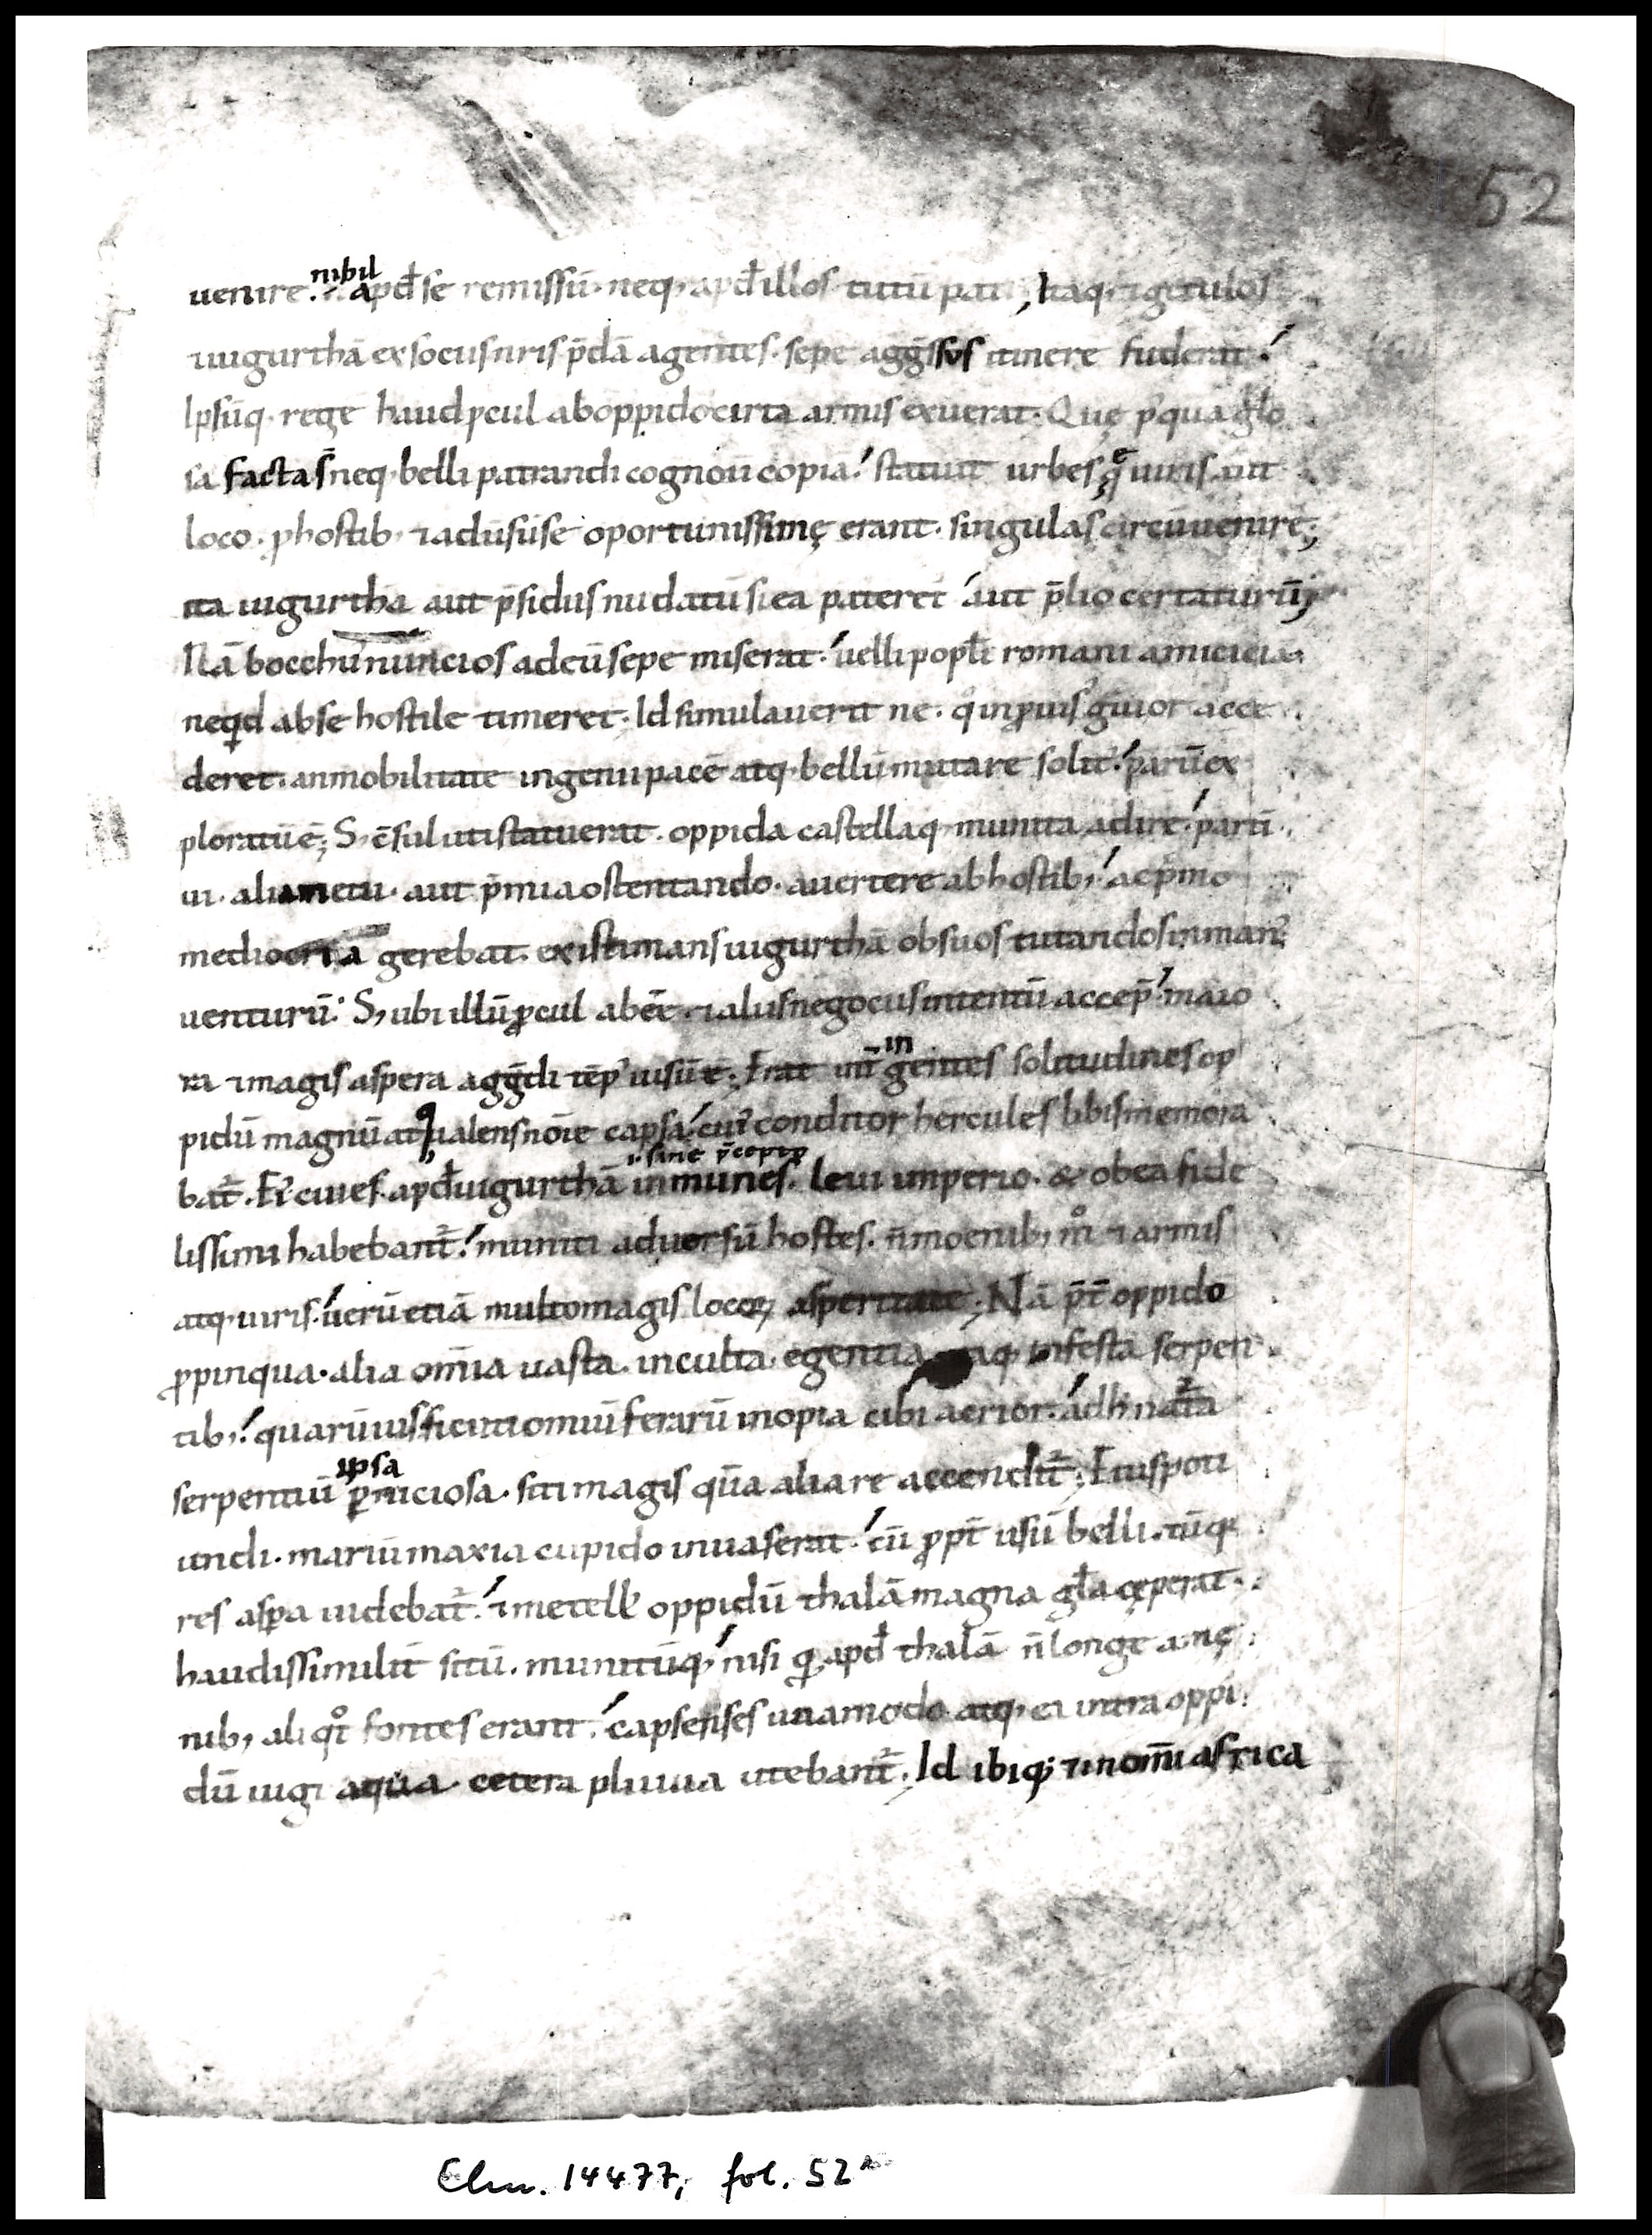 52
nihil
uenire. & apđ se remissū. neq; apđ illos tutū pati; Itaq; & getulos
iugurthā ex sociis nr̄is p̄dā agentes. sepe aggs̄sus itinere fuderat.
Ipsūq; regē haud ꝓcul ab oppido cirta armis exuerat. Quę p̱quā glo
ria facta s̄ neq; belli patrandi cognouit copia. statuit urbes quę uiris aut
loco. ꝓ hostib; & aduīsū se oportunissimę erant. singulas circūuenire;
ita iugurthā aut p̄sidiis nudatū si ea pateret aut p̄lio certaturū;
Nā bocchus nuncios ad eū sepe miserat. uelle popłi romani amicicia
ne qd ab se hostile timeret. Id simulauerit ne. qͦ inꝓuisꝰ grauior acce
deret. an mobilitate ingenii pacē atq; bellū mutare solitꝰ. parū ex
ploratū ē; S; c̄sul uti statuerat. oppida castellaq; munita adire. parti
ui. alia metu. aut p̄mia ostentando. auertere ab hostib; ac pͥmo
mediocria gerebat. existimans iugurthā ob suos tutandos in manꝰ
uenturū. S; ubi illū ꝓcul abeē. & aliis negociis intentū accep̄. maio
ra & magis aspera aggdi tēpꝰ uisū ē; Erat int̄ in
gentes solitudines op
pidū magnū atq; ualens nōie capsa. cuiꝰ conditor hercules libis memora
.i. sine p̄cepto
bat̄. Eiꝰ ciues. apđ iugurthā inmunes. leui imperio. & ob ea fide
lissimi habebant̄. muniti aduersū hostes. n̄ moenib; mͦ & armis
atq; uiris. uerū etiā multo magis locoꝝ asperitate; Nā p̄t oppido
ꝓpinqua. alia om̄ia uasta. inculta. egentia aq; infesta serpen
tib;. quarū uis sicuti om̄iū ferarū inopia cibi acrior. ad h̄ nat̄a
ipsa
serpentiū ꝑniciosa. siti magis qūa alia re accendit̄; Eius poti
undi. mariū maxīa cupido inuaserat. cū ꝓpt̄ usū belli. tūq;
res asꝑa uidebat̄. & metellꝰ oppidū thalā magna gła ceperat.
haud dissimilit̄ sitū. munitūq; nisi qđ apđ thalā n̄ longe a mę
nib; aliqͦt fontes erant. capsenses una modo atq; ea intra oppi
dū iugi aqua cetera pluuia utebant̄. Id ibiq; & in om̄i africa
Clm. 14477, fol. 52ʳ